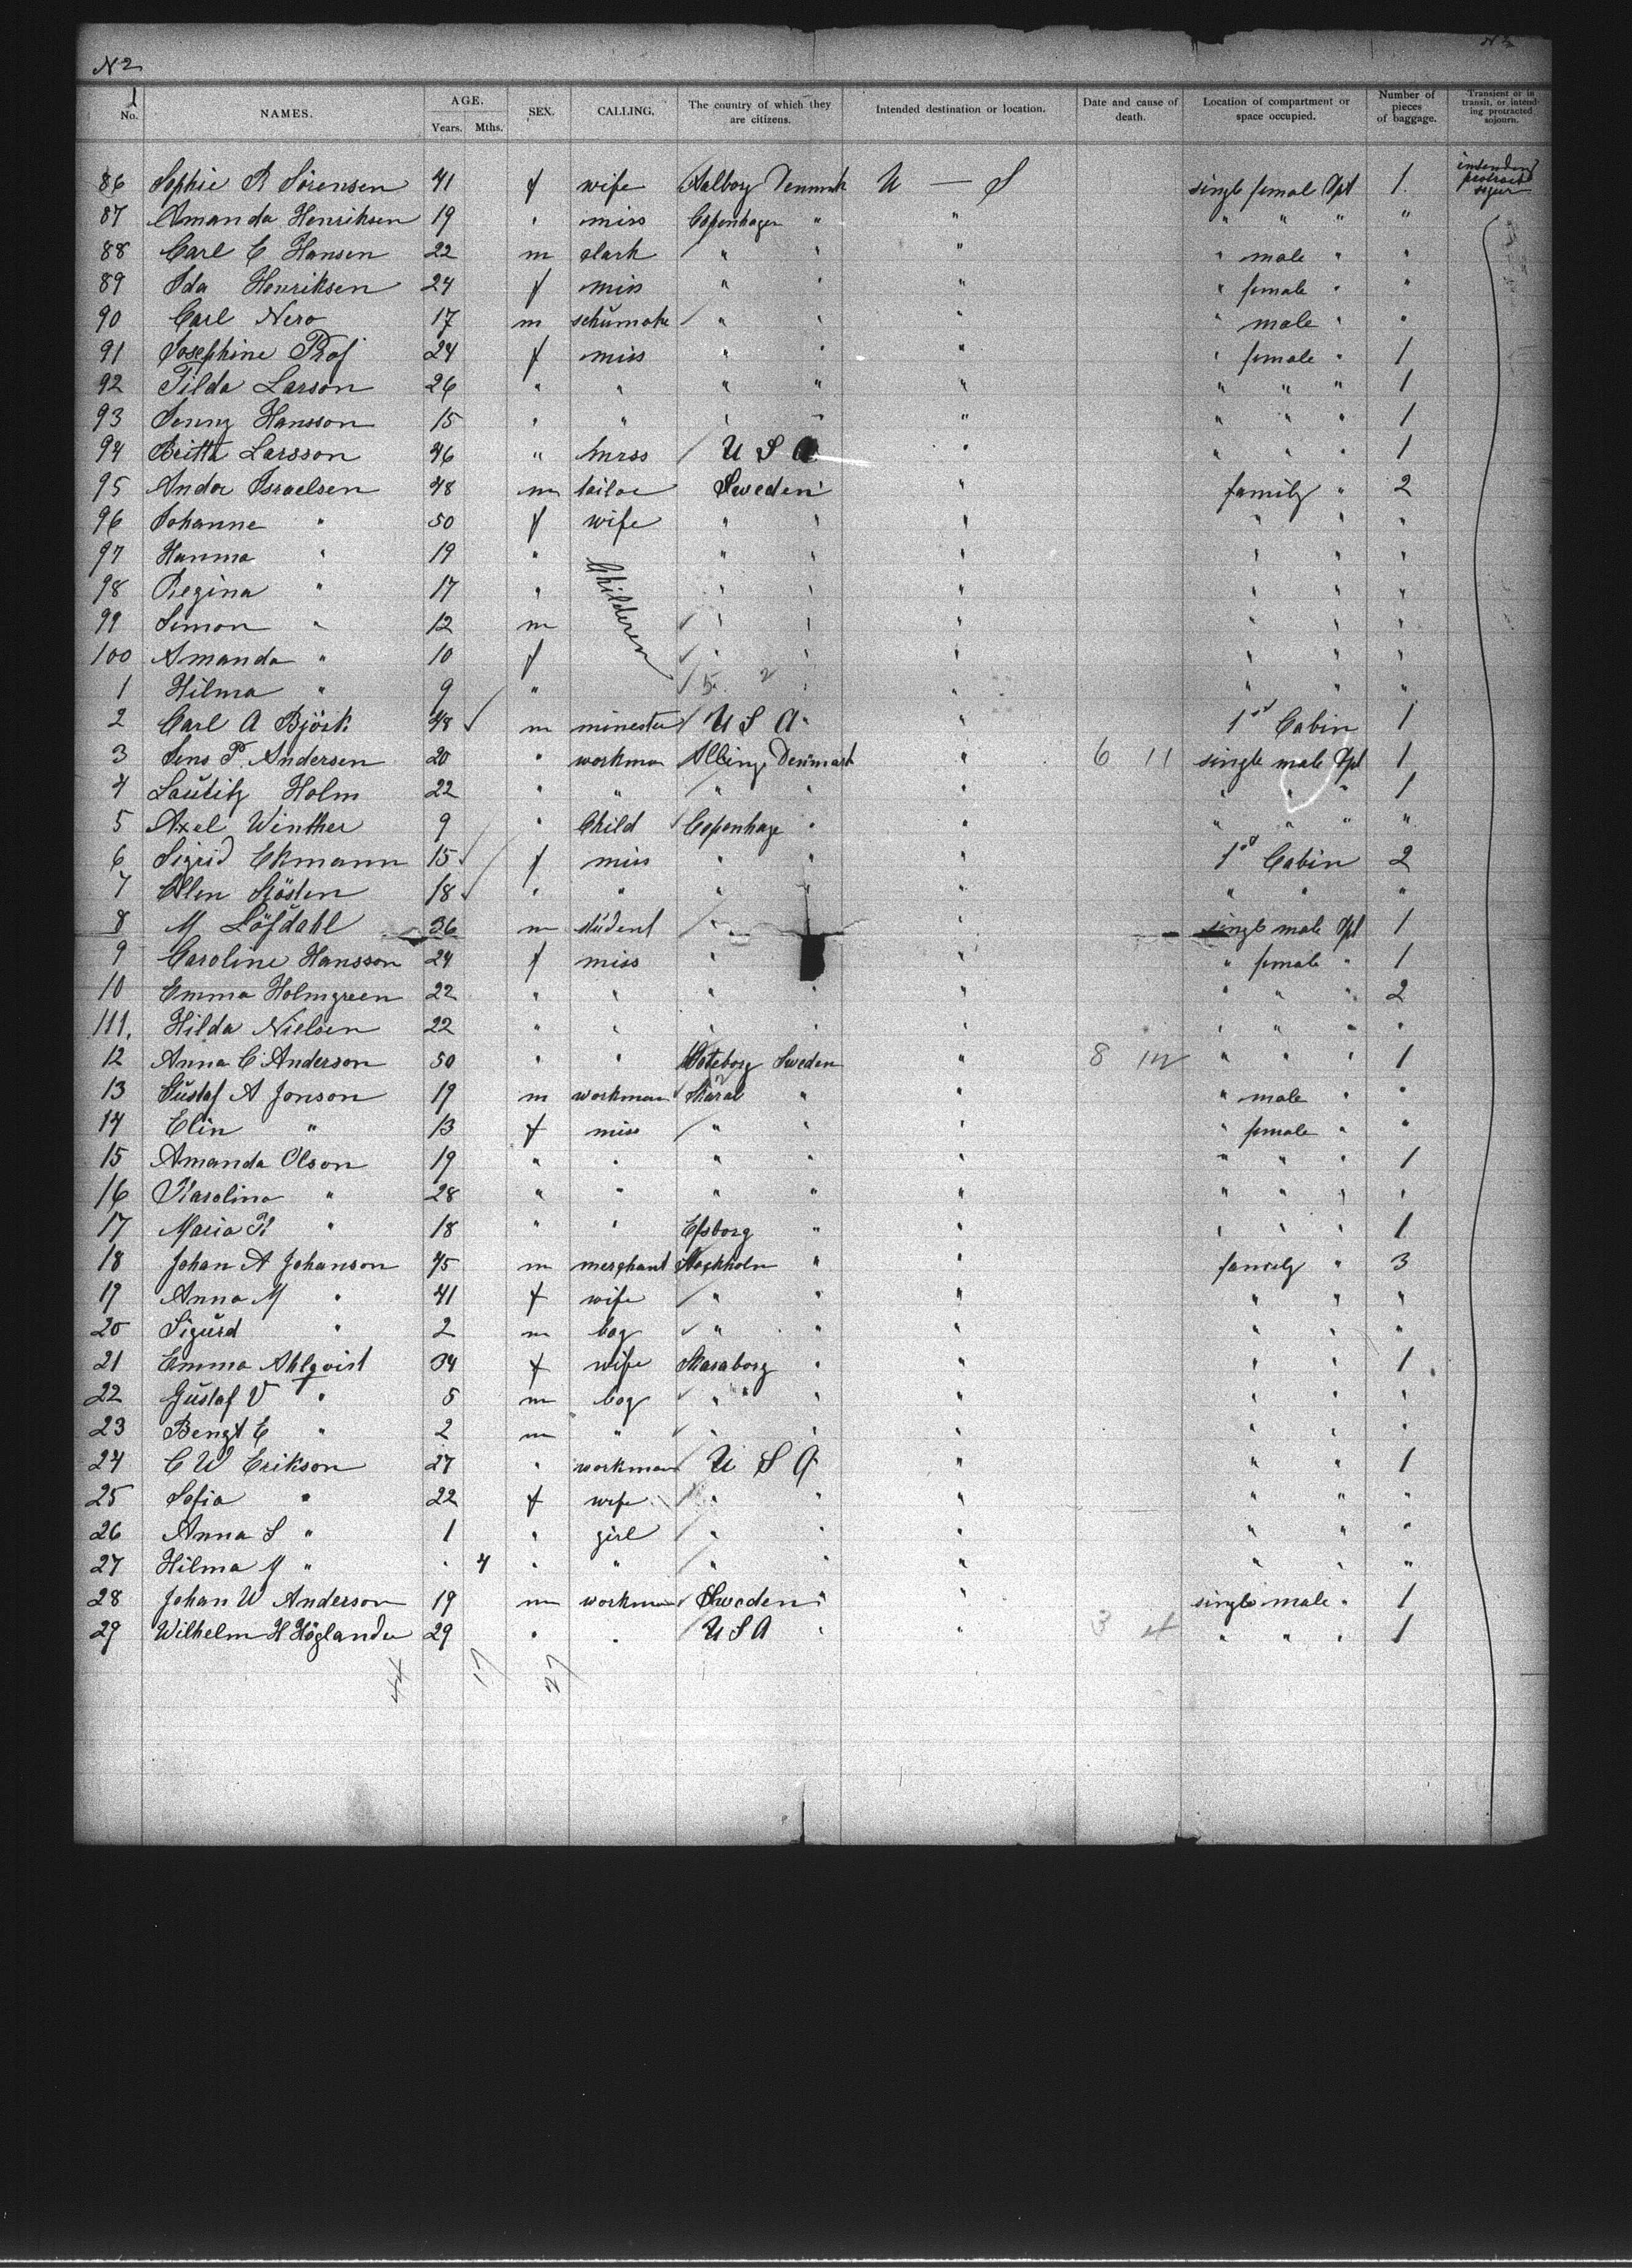 N 2
No. NAMES. AGE. Years. Mths. SEX. CALLING. The country of which they are citizens. Intended destination or location. Date and cause of death. Location of compartment or space occupied. Number of pieces of baggage. Transient or in transit, or intending protracted sojourn.
86 Sophie R Sörensen 41 f wife Aalborg Denmark U — S single femal Apt 1
87 Amanda Henriksen 19 " miss Copenhagen " " " " " "
88 Carl C Hansen 22 m clark " " " " male " "
89 Ida Henriksen 24 f miss " " " " female " "
90 Carl Nero 17 m schumake " " " " male " "
91 Josephine 24 f miss " " " " female " 1
92 Tilda Larson 26 " " " " " " " " 1
93 Jenny Hansson 15 " " " " " " " " 1
94 Britta Larsson 46 " U S A " " " " 1
95 Israelsen 48 m tailor Sweden " " family " 2
96 Johanne " 50 f wife " " " " " "
97 Hanma " 19 " Childeren " " " " " "
98 Regina " 17 " " " " " " "
99 Simon " 12 m " " " " " "
100 Amanda " 10 f " " " " " "
1 Hilma " 9 " " " " " "
2 Carl A Björk 48 m minester U S A " " 1st Cabin 1
3 Jens P. Andersen 20 " workman Allinge Denmark " 6 11 single male Apt 1
4 Holm 22 " " " " " " " " 1
5 Axel Winther 9 " Child Copenhage " " " " " "
6 Sigrid Ekmann 15 f miss " " " 1st Cabin 2
7 Ellen 18 " " " " " " " "
8 M Löfdahl 36 m student " " single male Apt 1
9 Caroline Hansson 24 f miss " " " female " 1
10 Emma Holmgreen 22 " " " " " " " " 2
111. Hilda Nielsen 22 " " " " " " " " "
12 Anna C Anderson 50 " " Goteborg Sweden " 8 " " " 1
13 Gustaf A Jonson 19 m workman " " " male " "
14 Elin " 13 f miss " " " " female " "
15 Amanda Olson 19 " " " " " " " " 1
16 Karolina " 28 " " " " " " " " "
17 Maria " 18 " " Elfsborg " " " " " 1
18 Johan A Johanson 45 m merchant Stockholm " " family " 3
19 Anna M " 41 f wife " " " " " "
20 Sigurd " 2 m boy " " " " " "
21 Emma Ahlqvist 34 f wife Skaraborg " " " " 1
22 Gustaf V " 5 m boy " " " " " "
23 Bengt E " 2 m " " " " " "
24 C W Erikson 27 " workman U S A " " " 1
25 Sofia " 22 f wife " " " " " "
26 Anna S " 1 " girl " " " " " "
27 Hilma M " " 4 " " " " " " " "
28 Johan W Anderson 19 m workman Sweden " " single male " 1
29 Wilhelm H Höglander 29 " " U S A " " 3 4 " " " 1
44 17 27